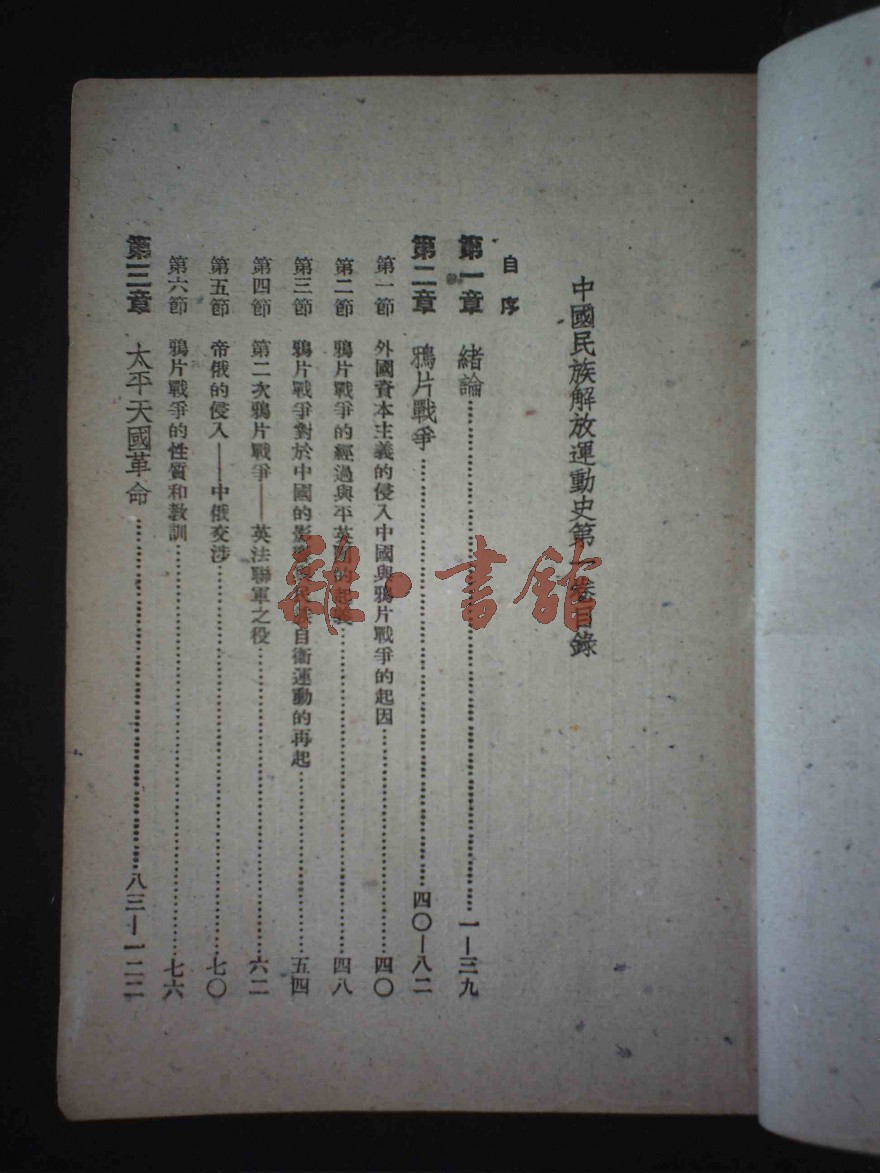 中國民族解放運動史第一卷目錄
自序
第一章 緒論……一—三九
第二章 鴉片戰爭……四〇—八二
第一節 外國資本主義的侵入中國與鴉片戰爭的起因……四〇
第二節 鴉片戰爭的經過與平英團的起義……四八
第三節 鴉片戰爭對於中國的影響與民族自衛運動的再起……五四
第四節 第二次鴉片戰爭——英法聯軍之役……六二
第五節 帝俄的侵入——中俄交涉……七〇
第六節 鴉片戰爭的性質和教訓……七六
第三章 太平天國革命……八三—一二二
雜·書館